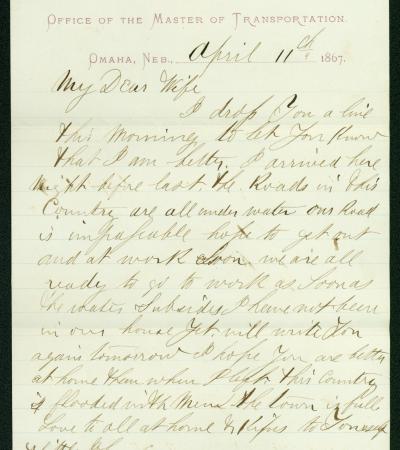 OFFICE OF THE MASTER OF TRANSPORTATION.
OMAHA, NEB., April 11th 1867.
My Dear Wife
I drop You a line
this Morning to let You Know
that I am better. I arrived here
night before last the Roads in this
Country are all under water our Road
is impassable hope to get out
and at work Soon we are all
ready to go to work as Soon as
the water Subsides I have not been
in our house Yet will write You
again tomorrow I hope You are better
at home then when I left this Country
is flooded with Men the town is full
Love to all at home & Kisses to Yourself